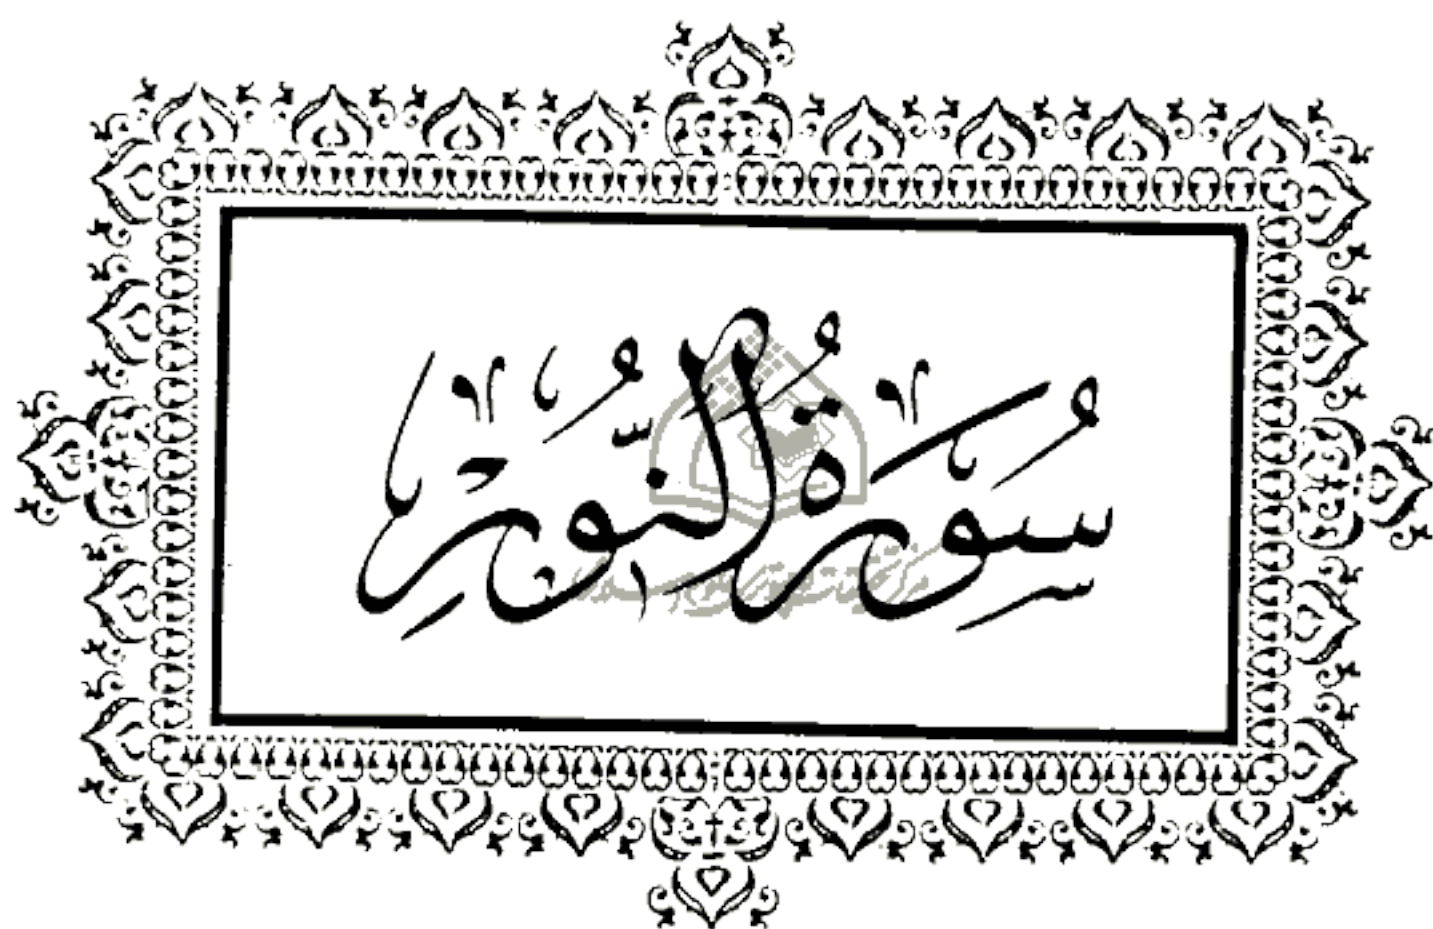 سُورَةُ النُّورِ